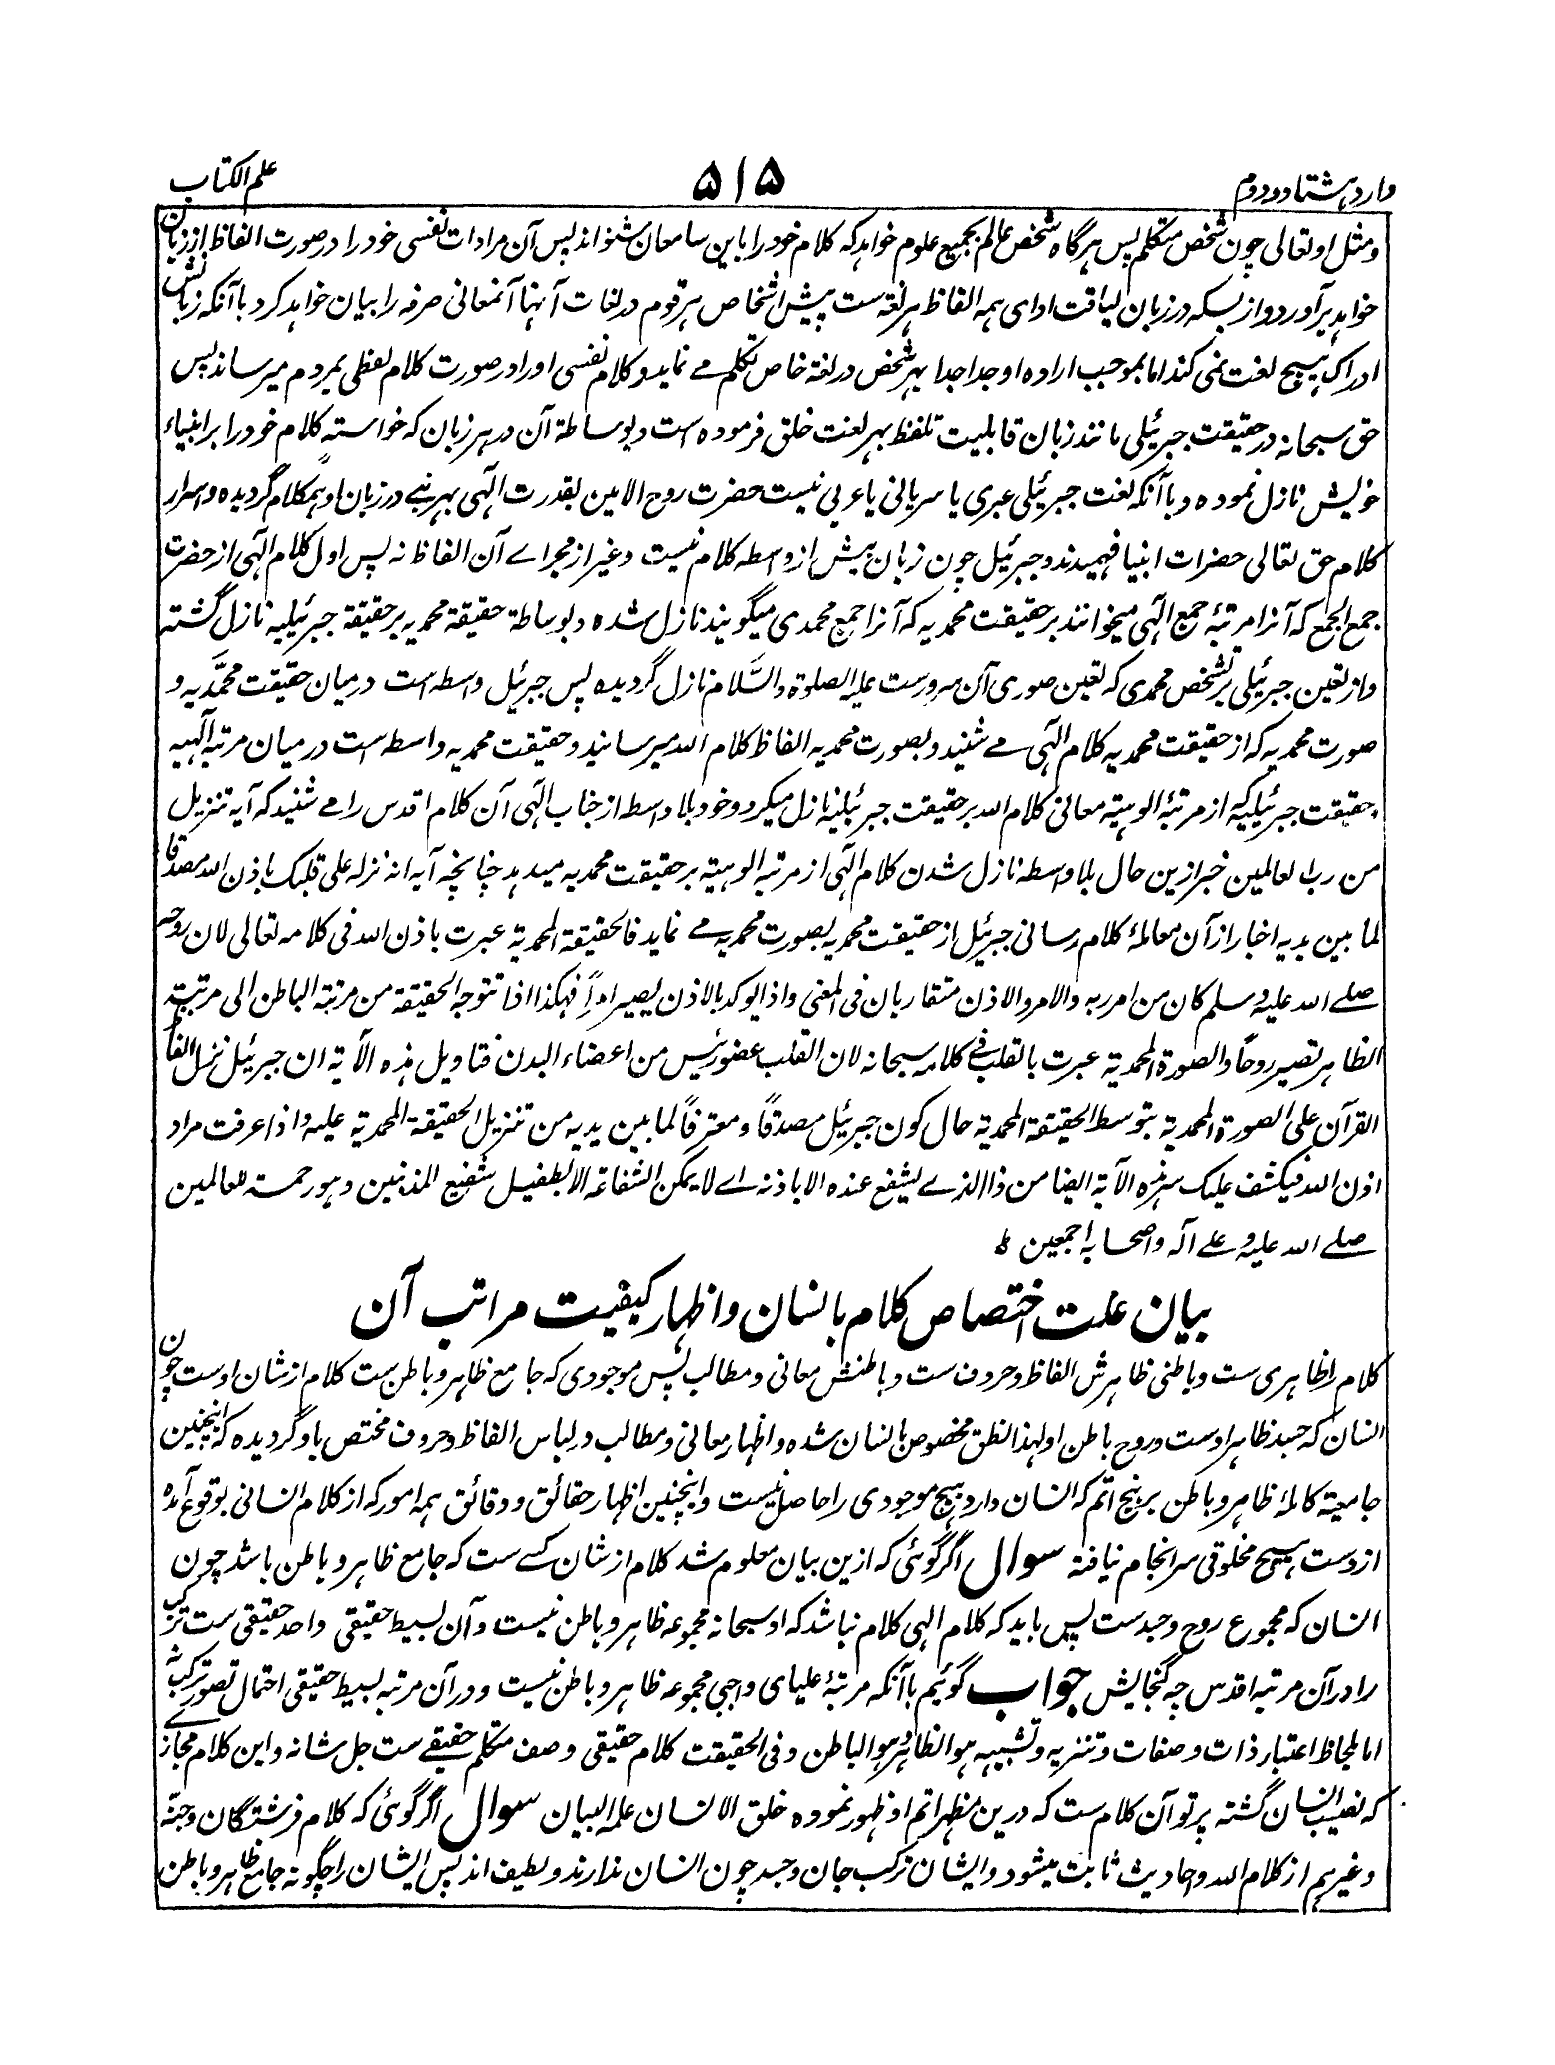 وارد ہشتاد و دوم
۵۱۵
علم الکتاب
و مثل او تعالی چون شخص متکلم پس ہرگاہ شخص عالم بجمیع علوم خواہد کہ کلام خود را باین سامعان شنواند پس آن مرادات نفسی خود را در صورت الفاظ از زبان
خواہد برآورد و از بسکہ در زبان لیاقت ادای ہمہ الفاظ ہر لغۃ ست پیش اشخاص ہر قوم در لغات آنہا آنمعانی صرفہ را بیان خواہد کرد با آنکہ زبانش
ادراک ہیچ لغت نمی کند اما بموجب ارادہ او جدا جدا بہر شخص در لغۃ خاص تکلم مے نماید و کلام نفسی او را در صورت کلام لفظی بمردم میرساند پس
حق سبحانہ در حقیقت جبرئیلی مانند زبان قابلیت تلفظ بہر لغت خلق فرمودہ است و بوساطۃ آن در ہر زبان کہ خواستہ کلام خود را بر انبیاء
خویش نازل نمودہ و با آنکہ لغت جبرئیلی عبری یا سریانی یا عربی نیست حضرت روح الامین بقدرت الٰہی بہر نبیے در زبان او ہمکلام گردیدہ و اسرار
کلام حق تعالی حضرات انبیا فہمیدند و جبرئیل چون زبان بیش از واسطہ کلام نیست و غیر از مجراے آن الفاظ نہ پس اول کلام الٰہی از حضرت
جمع الجمع کہ آنرا مرتبۂ جمع الٰہی میخوانند بر حقیقت محمدیہ کہ آنرا جمع محمدی میگویند نازل شدہ و بوساطۃ حقیقۃ محمدیہ بر حقیقۃ جبرئیلیہ نازل گشتہ
و از تعین جبرئیلی بر تشخص محمدی کہ تعین صوری آن سرورست علیہ الصلوۃ والسَّلام نازل گردیدہ پس جبرئیل واسطہ است درمیان حقیقت محمَّدیہ و
صورت محمدیہ کہ از حقیقت محمدیہ کلام الٰہی مے شنید و بصورت محمدیہ الفاظ کلام اللہ میرسانید و حقیقت محمدیہ واسطہ است در میان مرتبۂ الٰہیہ
حقیقت جبرئیلیہ کہ از مرتبۂ الوہیتہ معانی کلام اللہ بر حقیقت جبرئیلیہ نازل میکرد و خود بلا واسطہ از جناب الٰہی آن کلام اقدس را مے شنید کہ آیہ تنزیل
من رب العالمین خبر ازین حال بلا واسطہ نازل شدن کلام الٰہی از مرتبہ الوہیتہ بر حقیقت محمدیہ میدہد چنانچہ آیہ انہ نزلہ علی قلبک باذن اللہ مصدقا
لما بین یدیہ اخبار از آن معاملۂ کلام رسانی جبرئیل از حقیقت محمدیہ بصورت محمدیہ مے نماید فالحقیقۃ المحمدیۃ عبرت باذن اللہ فی کلامہ تعالی لان روحہ
صلے اللہ علیہ وسلم کان من امر ربہ والامر والاذن متقاربان فی المعنی واذا یوکد بالاذن یصیر امراً فہکذا اذا تتوجہ الحقیقۃ من مرتبۃ الباطن الی مرتبۃ
الظاہر تصیر روحاً والصورۃ المحمدیۃ عبرت بالقلب فے کلامہ سبحانہ لان القلب عضو رئیس من اعضاء البدن فتاویل ہذہ الآیۃ ان جبرئیل نزل الفاظ
القرآن علی الصورۃ المحمدیۃ بتوسط الحقیقۃ المحمدیۃ حال کون جبرئیل مصدقاً و معترفاً لما بین یدیہ من تنزیل الحقیقۃ المحمدیۃ علیہ واذا عرفت مراد
اذن اللہ فیکشف علیک سر ہذہ الآیۃ ایضا من ذا الذے یشفع عندہ الا باذنہ اے لا یمکن الشفاعۃ الا بطفیل شفیع المذنبین و ہو رحمۃ للعالمین
صلے اللہ علیہ و علے آلہ واصحابہ اجمعین
بیان علت اختصاص کلام بانسان و اظہار کیفیت مراتب آن
کلام را ظاہری ست و باطنی ظاہرش الفاظ و حروف ست و باطنش معانی و مطالب پس موجودی کہ جامع ظاہر و باطن ست کلام از شان اوست چون
انسان کہ جسد ظاہر اوست و روح باطن او لہذا نطق مخصوص بانسان شدہ و اظہار معانی و مطالب در لباس الفاظ و حروف مختص باو گردیدہ کہ اینچنین
جامعیتہ کاملۂ ظاہر و باطن بر نہج اتم کہ انسان دارد ہیچ موجودی را حاصل نیست و اینچنین اظہار حقائق و دقائق ہمہ امور کہ از کلام انسانی بوقوع آمدہ
از دست ہیچ مخلوقی سرانجام نیافتہ سوال اگر گوئی کہ ازین بیان معلوم شد کلام از شان کسے ست کہ جامع ظاہر و باطن باشد چون
انسان کہ مجموع روح و جسدست پس باید کہ کلام الہی کلام نباشد کہ او سبحانہ مجموعہ ظاہر و باطن نیست و آن بسیط حقیقی واحد حقیقی ست ترکیب
را در آن مرتبہ اقدس چہ گنجایش جواب گوئیم با آنکہ مرتبۂ علیای واجبی مجموعہ ظاہر و باطن نیست و در آن مرتبہ بسیط حقیقی احتمال تصور ترکیب نہ
اما بلحاظ اعتبار ذات و صفات و تنزیہ و تشبیہ ہو الظاہر و ہو الباطن و فی الحقیقت کلام حقیقی وصف متکلم حقیقے ست جل شانہ و این کلام مجازے
کہ نصیب انسان گشتہ پرتو آن کلام ست کہ درین مظہر اتم او ظہور نمودہ خلق الانسان علمہ البیان سوال اگر گوئی کہ کلام فرشتگان و جنّہ
و غیرہم از کلام اللہ و احادیث ثابت میشود و ایشان ترکیب جان و جسد چون انسان ندارند و لطیف اند پس ایشان را چگونہ جامع ظاہر و باطن